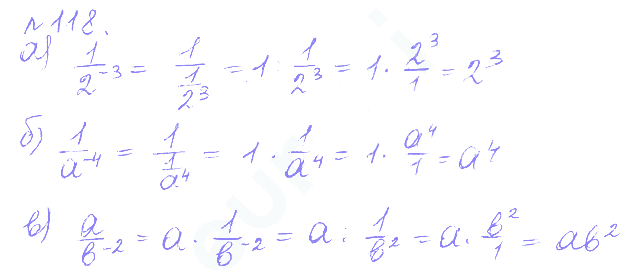 №118.
а) 1/2^-3 = 1/(1/2^3) = 1 : 1/2^3 = 1 · 2^3/1 = 2^3
б) 1/a^-4 = 1/(1/a^4) = 1 · 1/a^4 = 1 · a^4/1 = a^4
в) a/b^-2 = a · 1/b^-2 = a : 1/b^2 = a · b^2/1 = ab^2